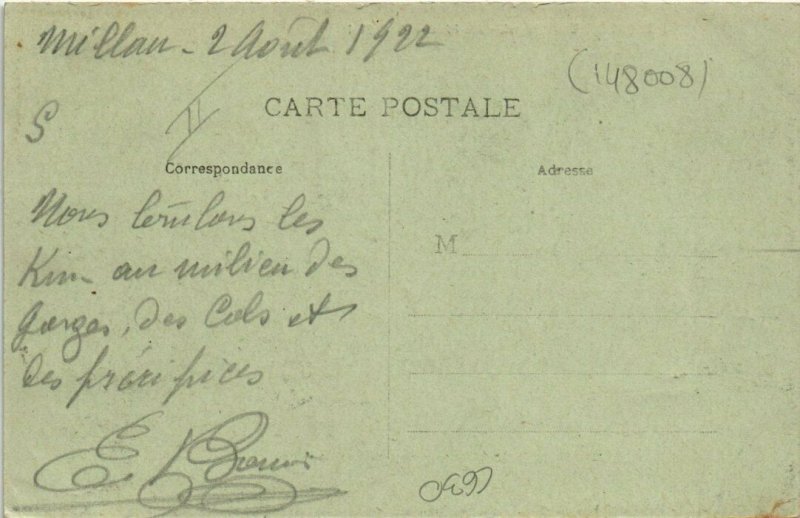 Millau - 2 Août 1922
(148008)
S
II
CARTE POSTALE
Correspondance
Adresse
Nous les
Km au milieu des
gorges, des Cols et
des précipices
M
E.